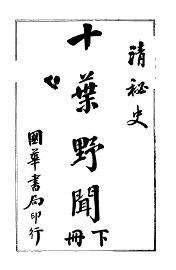 清秘史
十葉野聞
下冊
國華書局印行